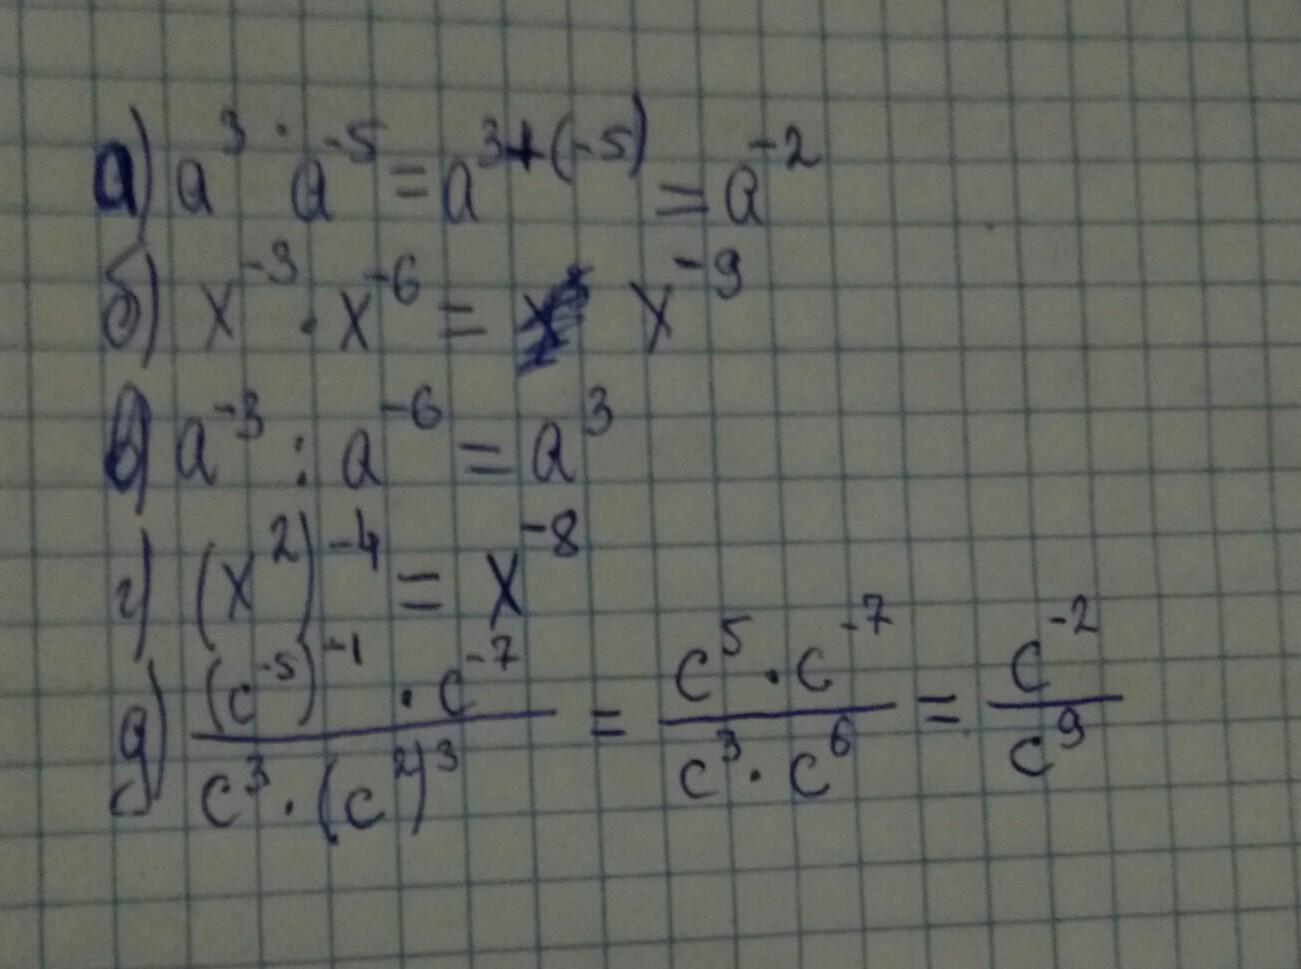 а) a³ · a⁻⁵ = a³⁺⁽⁻⁵⁾ = a⁻²
б) x⁻³ · x⁻⁶ = x⁻⁹
в) a⁻³ : a⁻⁶ = a³
г) (x²)⁻⁴ = x⁻⁸
д) (c⁻⁵)⁻¹ · c⁻⁷ / c³ · (c²)³ = c⁵ · c⁻⁷ / c³ · c⁶ = c⁻² / c⁹